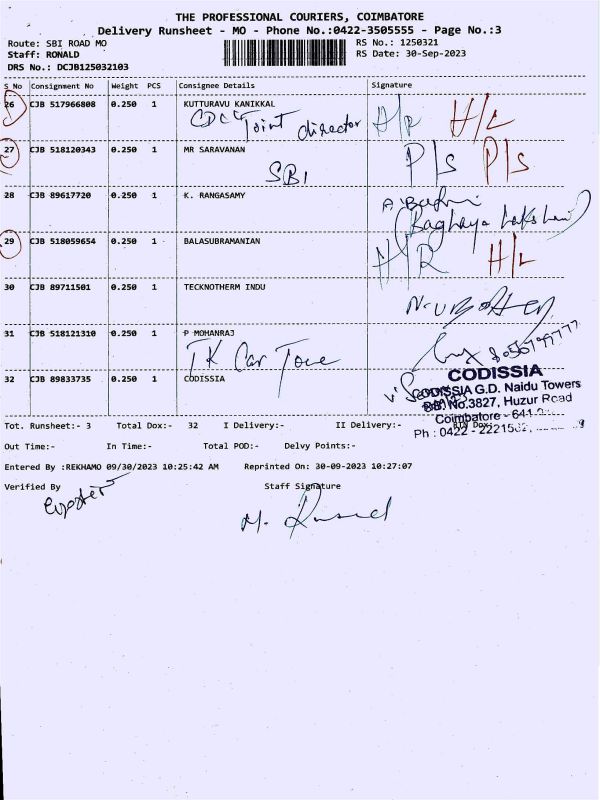 THE PROFESSIONAL COURIERS, COIMBATORE
Delivery Runsheet - MO - Phone No.:0422-3505555 - Page No.:3
Route: SBI ROAD MO RS No.: 1250321
Staff: RONALD RS Date: 30-Sep-2023
DRS No.: DCJB125032103
S No Consignment No Weight PCS Consignee Details Signature
26 CJB 517966808 0.250 1 KUTTURAVU KANIKKAL
Joint director H/R H/L
27 CJB 518120343 0.250 1 MR SARAVANAN P/S P/S
SBI
28 CJB 89617720 0.250 1 K. RANGASAMY
29 CJB 518059654 0.250 1 BALASUBRAMANIAN H/R H/L
30 CJB 89711501 0.250 1 TECKNOTHERM INDU
31 CJB 518121310 0.250 1 P MOHANRAJ
TK Car
32 CJB 89833735 0.250 1 CODISSIA
CODISSIA
CODISSIA G.D. Naidu Towers
No.3827, Huzur Road
Coimbatore - 641
Ph : 0422 -
Tot. Runsheet:- 3 Total Dox:- 32 I Delivery:- II Delivery:-
Out Time:- In Time:- Total POD:- Delvy Points:-
Entered By :REKHAMO 09/30/2023 10:25:42 AM Reprinted On: 30-09-2023 10:27:07
Verified By Staff Signature